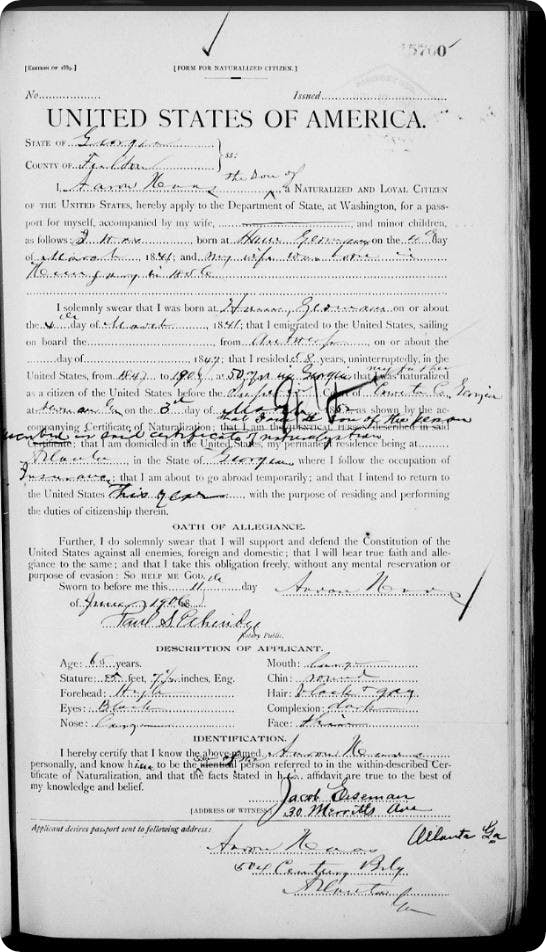 15760
[EDITION OF 1889.] [FORM FOR NATURALIZED CITIZEN.]
No. Issued
UNITED STATES OF AMERICA.
STATE OF Georgia
COUNTY OF Fulton ss:
the Son of
I, Aaron Haas, a NATURALIZED AND LOYAL CITIZEN
OF THE UNITED STATES, hereby apply to the Department of State, at Washington, for a pass-
port for myself, accompanied by my wife, and minor children,
as follows: born at Germany on the Day
of March, 1841; and my wife was born in
in
I solemnly swear that I was born at Germany on or about
the day of March, 1841; that I emigrated to the United States, sailing
on board the from on or about the
day of 1847; that I resided 58 years, uninterruptedly, in the
United States, from 1847 to 1906 at 50 yrs in Georgia that my father was naturalized
as a citizen of the United States before the Court of Coweta Co Georgia
at on the 3rd day of as shown by the ac-
companying Certificate of Naturalization; that I am the IDENTICAL PERSON described in said
that I am the son of the person
described in said certificate of naturalization
Certificate; that I am domiciled in the United States, my permanent residence being at
Atlanta in the State of Georgia where I follow the occupation of
Insurance; that I am about to go abroad temporarily; and that I intend to return to
the United States This year with the purpose of residing and performing
the duties of citizenship therein.
OATH OF ALLEGIANCE.
Further, I do solemnly swear that I will support and defend the Constitution of the
United States against all enemies, foreign and domestic; that I will bear true faith and alle-
giance to the same; and that I take this obligation freely, without any mental reservation or
purpose of evasion: SO HELP ME GOD.
Sworn to before me this 11 day Aaron Haas
of 1906
Paul S Etheridge
Notary Public.
DESCRIPTION OF APPLICANT.
Age: 65 years. Mouth: Large
Stature: 5 feet, 7 1/2 inches, Eng. Chin: round
Forehead: High Hair: black & gray
Eyes: Black Complexion: dark
Nose: Large Face: thin
IDENTIFICATION.
I hereby certify that I know the above-named Aaron Haas
personally, and know him to be the identical person referred to in the within-described Cer-
tificate of Naturalization, and that the facts stated in his affidavit are true to the best of
my knowledge and belief.
Jacob Eiseman
[ADDRESS OF WITNESS] 30 Merritts Ave
Atlanta Ga
Applicant desires passport sent to following address:
Aaron Haas
504 Century Bldg
Atlanta
Ga